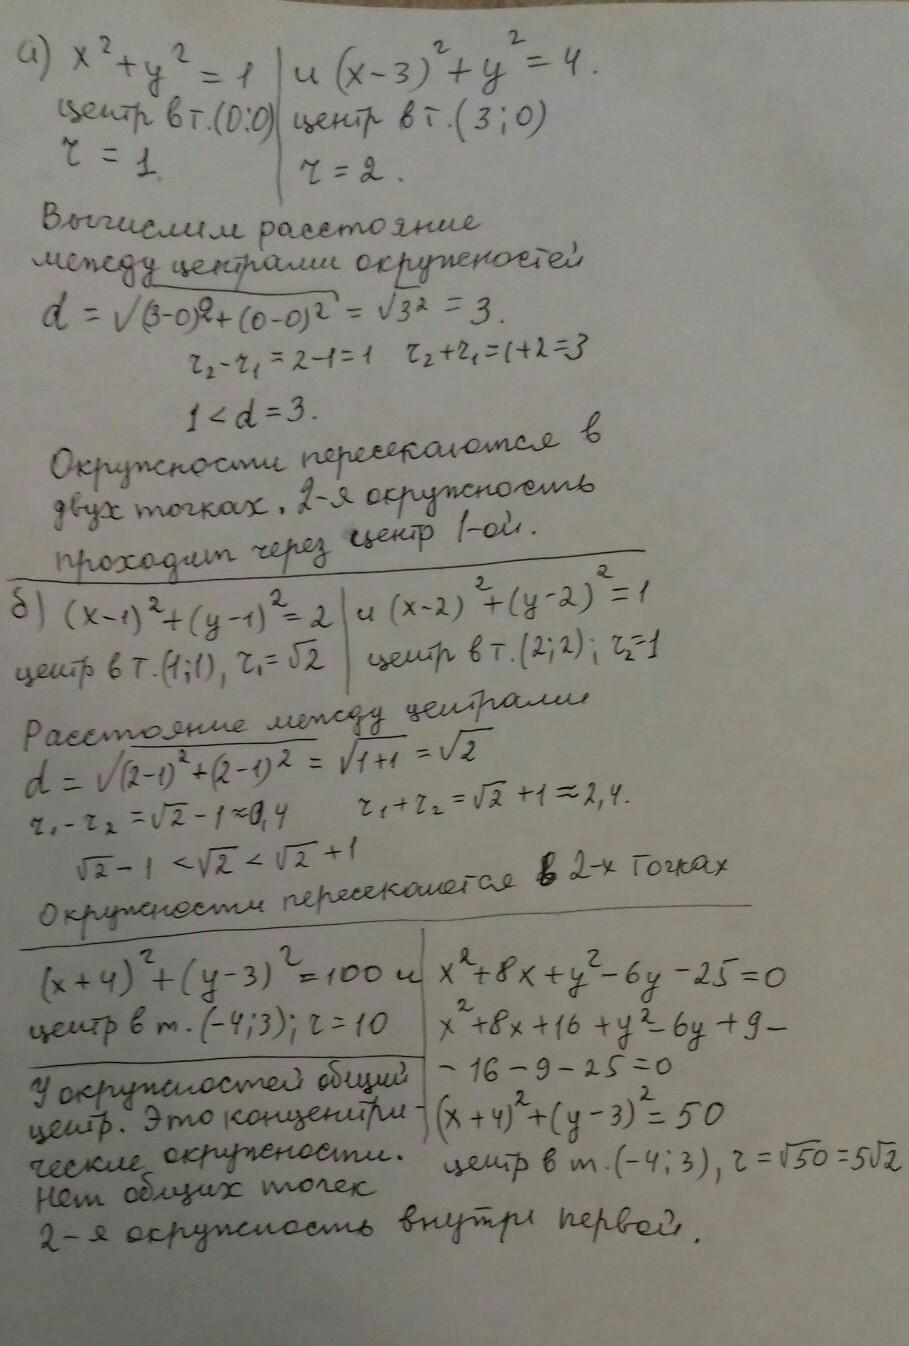 а) x² + y² = 1 | и (x-3)² + y² = 4.
центр в т.(0;0) | центр в т.(3;0)
r = 1. | r = 2.
Вычислим расстояние
между центрами окружностей
d = √(3-0)²+(0-0)² = √3² = 3.
r₂-r₁ = 2-1=1 r₂+r₁=1+2=3
1 < d = 3.
Окружности пересекаются в
двух точках. 2-я окружность
проходит через центр 1-ой.
б) (x-1)²+(y-1)²=2 | и (x-2)²+(y-2)²=1
центр в т.(1;1), r₁=√2 | центр в т.(2;2); r₂=1
Расстояние между центрами
d = √(2-1)²+(2-1)² = √1+1 = √2
r₁-r₂ =√2-1≈0,4 r₁+r₂=√2+1≈2,4.
√2-1 <√2 < √2+1
Окружности пересекаются в 2-х точках
(x+4)²+(y-3)²=100 и | x²+8x+y²-6y-25=0
центр в т.(-4;3); r=10 | x²+8x+16+y²-6y+9-
-16-9-25=0
У окружностей общий
центр. Это концентри-
ческие окружности.
Нет общих точек
2-я окружность внутри первой.
(x+4)²+(y-3)²=50
центр в т.(-4;3), r=√50=5√2